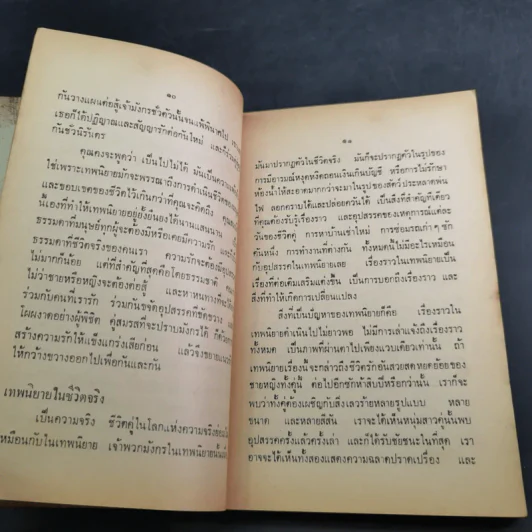 ๑๐
กันวางแผนต่อสู้เจ้ามังกรชั่วตัวนั้นจนแพ้พินาศไป
เธอก็ได้ปฏิญาณและสัญญารักต่อกันใหม่ และก็ร่วม
กันชั่วนิรันดร
คุณคงจะพูดว่า เป็นไปไม่ได้ มันเป็นความ
ใช่เพราะเทพนิยายมักจะพรรณาถึงการดำเนินชีวิต
และขอบเขตของชีวิตไว้เกินกว่าที่คุณจะคิดถึง
นี้เองที่ทำให้เทพนิยายอยู่ยั่งยืนยงได้นานแสนนาน
ธรรมดาที่มนุษย์ทุกผู้จะต้องมีหรือเคยมีความรัก และ
ธรรมดาที่ชีวิตจริงของคนเรา ความรักจะต้องมี
ไม่มากก็น้อย แต่ที่สำคัญที่สุดคือโดยธรรมชาติ
ไม่ว่าชายหรือหญิงจะต้องต่อสู้ และหาหนทางที่จะ
ร่วมกับคนที่เรารัก ร่วมกันขจัดอุปสรรคที่ขัดขวาง และ
โผผงาดอย่างผู้พิชิต คู่สมรสที่จะปราบมังกรได้ ก็ด้วย
สร้างความรักให้แข็งแกร่งเสียก่อน แล้วจึงขยาย
ให้กว้างขวางออกไปเพื่อกันและกัน
เทพนิยายในชีวิตจริง
เป็นความจริง ชีวิตคู่ในโลกแห่งความจริงย่อม
เหมือนกับในเทพนิยาย เจ้าพวกมังกรในเทพนิยายนั้น
๑๑
มันมาปรากฏตัวในชีวิตจริง มันก็จะปรากฏตัวในรูปของ
การมีอารมณ์หงุดหงิดถอนเงินเกินบัญชี หรือการไม่รักษา
ห้องน้ำให้สะอาดมากกว่าจะมาในรูปของสัตว์ ประหลาดพ่น
ไฟ ลอกคราบได้และปล่อยควันได้ เป็นสิ่งที่สำคัญทีเดียว
ที่คุณต้องรับรู้เรื่องราว และอุปสรรคของเหตุการณ์แต่ละ
วันของชีวิตคู่ การหาบ้านเช่าใหม่ การซ่อมรถเก่าๆ ซัก
คันหนึ่ง การทำงานที่ต่างกัน ทั้งหมดนี้ไม่มีอะไรเหมือน
กับอุปสรรคในเทพนิยายเลย เรื่องราวในเทพนิยายเป็น
เรื่องที่ต่อเติมเสริมแต่งขึ้น เป็นการบอกถึงเรื่องราว และ
สิ่งที่ทำให้เกิดการเปลี่ยนแปลง
สิ่งที่เป็นปัญหาของเทพนิยายก็คือ เรื่องราวใน
เทพนิยายดำเนินไปไม่ยาวพอ ไม่มีการเล่าแจ้งถึงเรื่องราว
ทั้งหมด เป็นภาพที่ผ่านตาไปเพียงแวบเดียวเท่านั้น ถ้า
เทพนิยายเรื่องนี้จะกล่าวถึงชีวิตรักอันสวยสดหยดย้อยของ
ชายหญิงทั้งคู่นี้ ต่อไปอีกซักห้าสิบปีหรือกว่านั้น เราก็จะ
พบว่าทั้งคู่ต้องเผชิญกับสิ่งเลวร้ายหลายรูปแบบ หลาย
ขนาด และหลายสีสัน เราจะได้เห็นหนุ่มสาวคู่นั้นพบ
อุปสรรคครั้งแล้วครั้งเล่า และก็ได้รับชัยชนะในที่สุด เรา
อาจจะได้เห็นทั้งสองแสดงความฉลาดปราดเปรื่อง และ